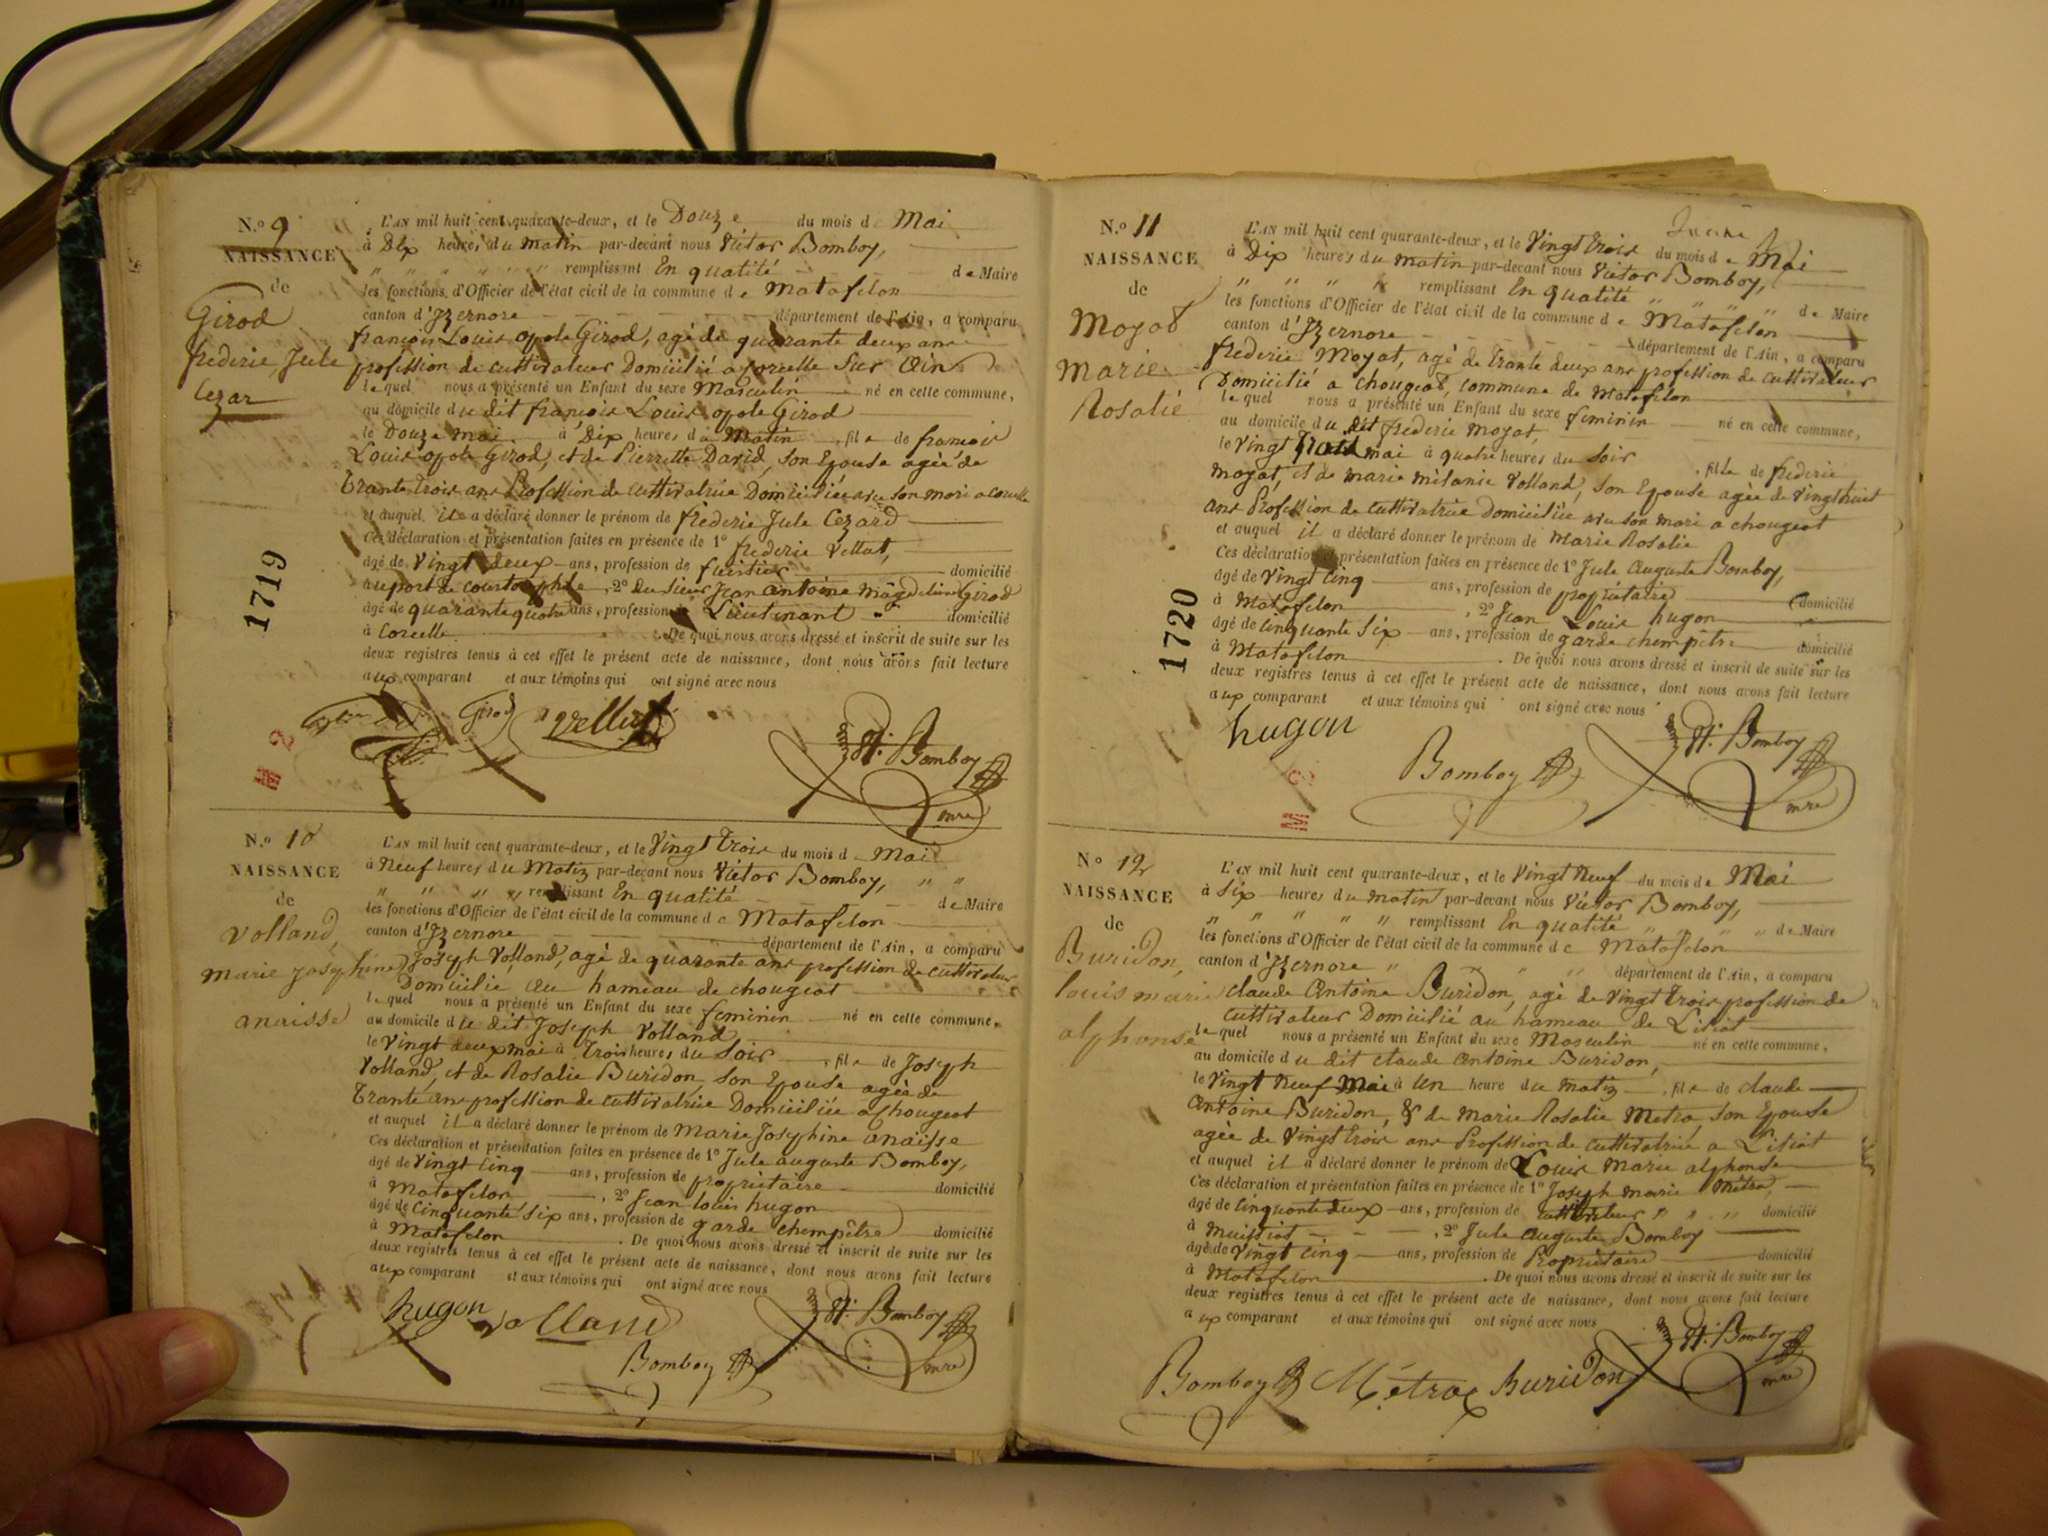 N.o 9
NAISSANCE
de
Girod
frederic Jule
Cezar
L'AN mil huit cent quarante-deux, et le Douze du mois d Mai
à Dix heures du matin par-devant nous Victor Bomboy,
" " " " " " remplissant En qualité de Maire
les fonctions d'Officier de l'état civil de la commune de Matafelon
canton d'Izernore département de l'Ain, a comparu
françois Louis Girod, agé de quarante deux ans
profession de cultivateur Domicilié a Corcelle Sur Ain
lequel nous a présenté un Enfant du sexe Masculin né en cette commune,
au domicile du dit françois Louis Girod
le Douze mai à Dix heures du Matin, fils de françois
Louis Girod, et de Pierrette David, son Epouse agée de
trante trois ans Profession de cultivatrice Domiciliée avec son mari a corcelle
et auquel il a déclaré donner le prénom de frederic Jule Cezard
Ces déclaration et présentation faites en présence de 1o frederic Vellat,
âgé de Vingt deux ans, profession de domicilié
au port de 2o du sieur Jean Antoine Girod
âgé de quarante quatre ans, profession de Lieutenant domicilié
à Corcelle. De quoi nous avons dressé et inscrit de suite sur les
deux registres tenus à cet effet le présent acte de naissance, dont nous avons fait lecture
aux comparant et aux témoins qui ont signé avec nous
Girod Vellat Vr. Bomboy
mre
1719
M 2
N.o 10
NAISSANCE
de
Volland,
marie josephine
anaisse
L'AN mil huit cent quarante-deux, et le Vingt trois du mois d Mai
à Neuf heures du Matin par-devant nous Victor Bomboy, " "
" " " " remplissant En qualité de Maire
les fonctions d'Officier de l'état civil de la commune de Matafelon
canton d'Izernore département de l'Ain, a comparu
Joseph Volland, agé de quarante ans profession de cultivateur
Domicilié au hameau de chougeat
lequel nous a présenté un Enfant du sexe feminin né en cette commune,
au domicile du dit Joseph Volland
le Vingt deux mai à Trois heures du Soir, fil e de Joseph
Volland, et de Rosalie Buridon, son Epouse agée de
trante ans profession de cultivatrice Domiciliée a Chougeat
et auquel il a déclaré donner le prénom de Marie Josephine anaïsse
Ces déclaration et présentation faites en présence de 1o Jule auguste Bomboy,
âgé de Vingt cinq ans, profession de propriétaire
à Matafelon, 2o Jean Louis hugon domicilié
âgé de Cinquante Six ans, profession de garde chempêtre domicilié
à Matafelon. De quoi nous avons dressé et inscrit de suite sur les
deux registres tenus à cet effet le présent acte de naissance, dont nous avons fait lecture
aux comparant et aux témoins qui ont signé avec nous
hugon Volland Vr. Bomboy
Bomboy mre
N.o 11
NAISSANCE
de
Moyat
Marie
Rosalie
L'AN mil huit cent quarante-deux, et le Vingt trois du mois de Mai
à Dix heures du matin par-devant nous Victor Bomboy,
" " " " remplissant En qualité de Maire
les fonctions d'Officier de l'état civil de la commune de Matafelon
canton d'Izernore département de l'Ain, a comparu
frederic Moyat, agé de trante deux ans profession de cultivateur
Domicilié a chougeat, commune de Matafelon
lequel nous a présenté un Enfant du sexe feminin né en cette commune,
au domicile du dit frederic moyat,
le Vingt mai à quatre heures du Soir, fille de frederic
moyat, et de marie mélanie Volland, son Epouse agée de vingt huit
ans Profession de cultivatrice Domiciliée avec son mari a chougeat
et auquel il a déclaré donner le prénom de Marie Rosalie
Ces déclaration et présentation faites en présence de 1o Jule Auguste Bomboy,
âgé de Vingt Cinq ans, profession de propriétaire domicilié
à Matafelon, 2o Jean Louis hugon
âgé de Cinquante Six ans, profession de garde chempêtre domicilié
à Matafelon. De quoi nous avons dressé et inscrit de suite sur les
deux registres tenus à cet effet le présent acte de naissance, dont nous avons fait lecture
aux comparant et aux témoins qui ont signé avec nous
hugon Vr. Bomboy
Bomboy mre
1720
M
N.o 12
NAISSANCE
de
Buridon,
louis marie
alphonse
L'AN mil huit cent quarante-deux, et le Vingt Neuf du mois de Mai
à Six heures du matin par-devant nous Victor Bomboy,
" " " " " remplissant En qualité de Maire
les fonctions d'Officier de l'état civil de la commune de Matafelon
canton d'Izernore département de l'Ain, a comparu
claude Antoine Buridon, agé de vingt trois profession de
cultivateur Domicilié au hameau de Lisiat
lequel nous a présenté un Enfant du sexe Masculin né en cette commune,
au domicile du dit claude Antoine Buridon,
le Vingt Neuf Mai à Un heure du matin, fil s de claude
Antoine Buridon, & de Marie Rosalie Metra, son Epouse
agée de Vingt trois ans Profession de cultivatrice a Lisiat
et auquel il a déclaré donner le prénom de Louis Marie alphonse
Ces déclaration et présentation faites en présence de 1o Joseph marie Métra,
âgé de Cinquante deux ans, profession de cultivateur domicilié
à muissiat, 2o Jule Auguste Bomboy
âgé de Vingt Cinq ans, profession de Propriétaire domicilié
à Matafelon. De quoi nous avons dressé et inscrit de suite sur les
deux registres tenus à cet effet le présent acte de naissance, dont nous avons fait lecture
aux comparant et aux témoins qui ont signé avec nous
Bomboy Métra Buridon Vr. Bomboy
mre